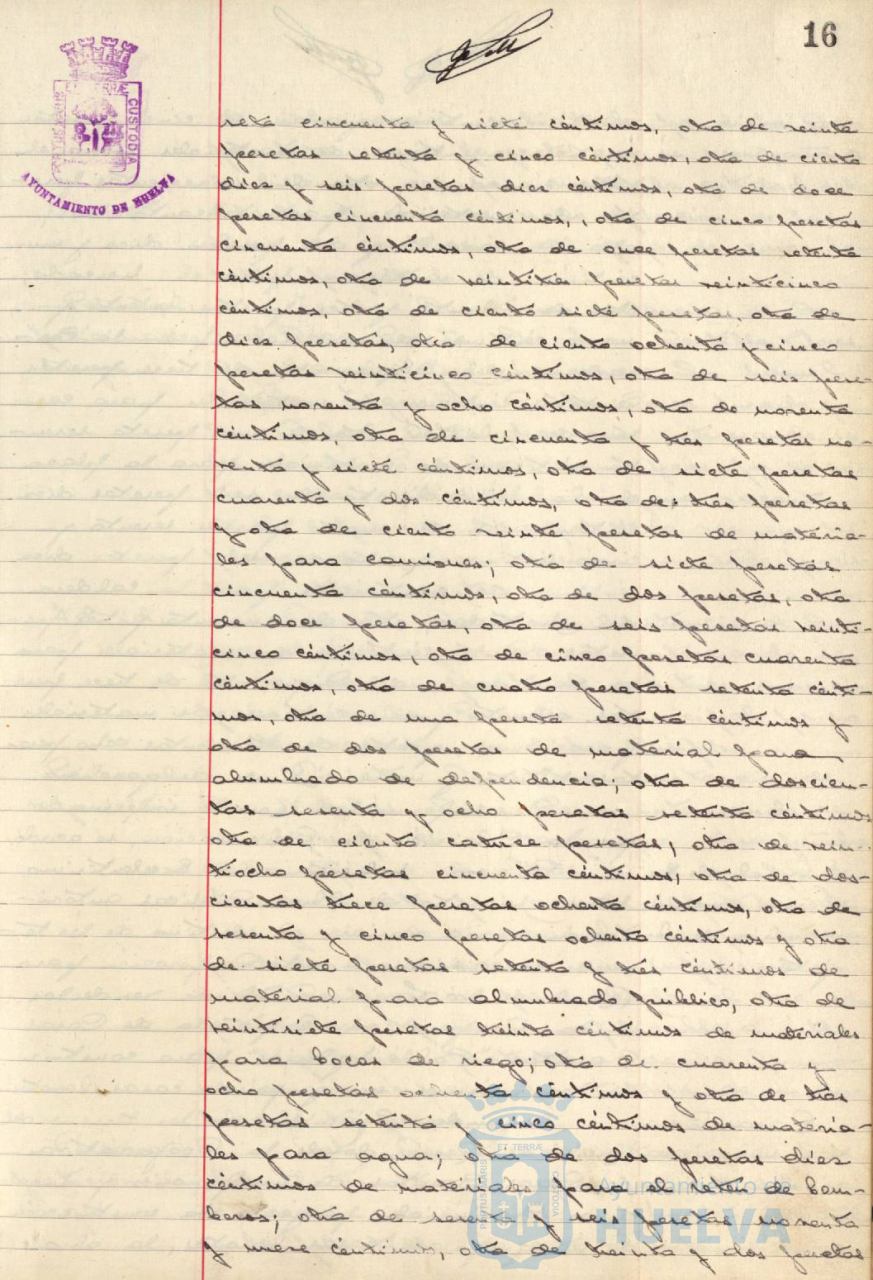 16
PORTUS MARIS ET TERRÆ CUSTODIA
AYUNTAMIENTO DE HUELVA
seta cincuenta y siete céntimos, otra de veinte
pesetas setenta y cinco céntimos, otra de ciento
dies y seis pesetas dies céntimos, otra de doce
pesetas cincuenta céntimos, otra de cinco pesetas
cincuenta céntimos, otra de once pesetas setenta
céntimos, otra de veintitres pesetas veinticinco
céntimos, otra de ciento siete pesetas, otra de
dies pesetas, otra de ciento ochenta y cinco
pesetas veinticinco céntimos, otra de seis pese-
tas noventa y ocho céntimos, otra de noventa
céntimos, otra de cincuenta y tres pesetas no-
venta y siete céntimos, otra de siete pesetas
cuarenta y dos céntimos, otra de tres pesetas
y otra de ciento veinte pesetas de materia-
les para camiones; otra de siete pesetas
cincuenta céntimos, otra de dos pesetas, otra
de doce pesetas, otra de seis pesetas veinti-
cinco céntimos, otra de cinco pesetas cuarenta
céntimos, otra de cuatro pesetas setenta cénti-
mos, otra de una peseta setenta céntimos y
otra de dos pesetas de material para
alumbrado de dependencia; otra de doscien-
tas sesenta y ocho pesetas setenta céntimos
otra de ciento catorce pesetas, otra de vein-
tiocho pesetas cincuenta céntimos, otra de dos-
cientas trece pesetas ochenta céntimos, otra de
sesenta y cinco pesetas ochenta céntimos y otra
de siete pesetas setenta y tres céntimos de
material para alumbrado público, otra de
veintisiete pesetas treinta céntimos de materiales
para bocas de riego; otra de cuarenta y
ocho pesetas ochenta céntimos y otra de tres
pesetas setenta y cinco céntimos de materia-
les para agua; otra de dos pesetas dies
céntimos de materiales para el reten de bom-
beros; otra de sesenta y seis pesetas noventa
y nueve céntimos, otra de treinta y dos pesetas
ET TERRÆ
CUSTODIA
PORTUS MARIS
Ayuntamiento de
HUELVA